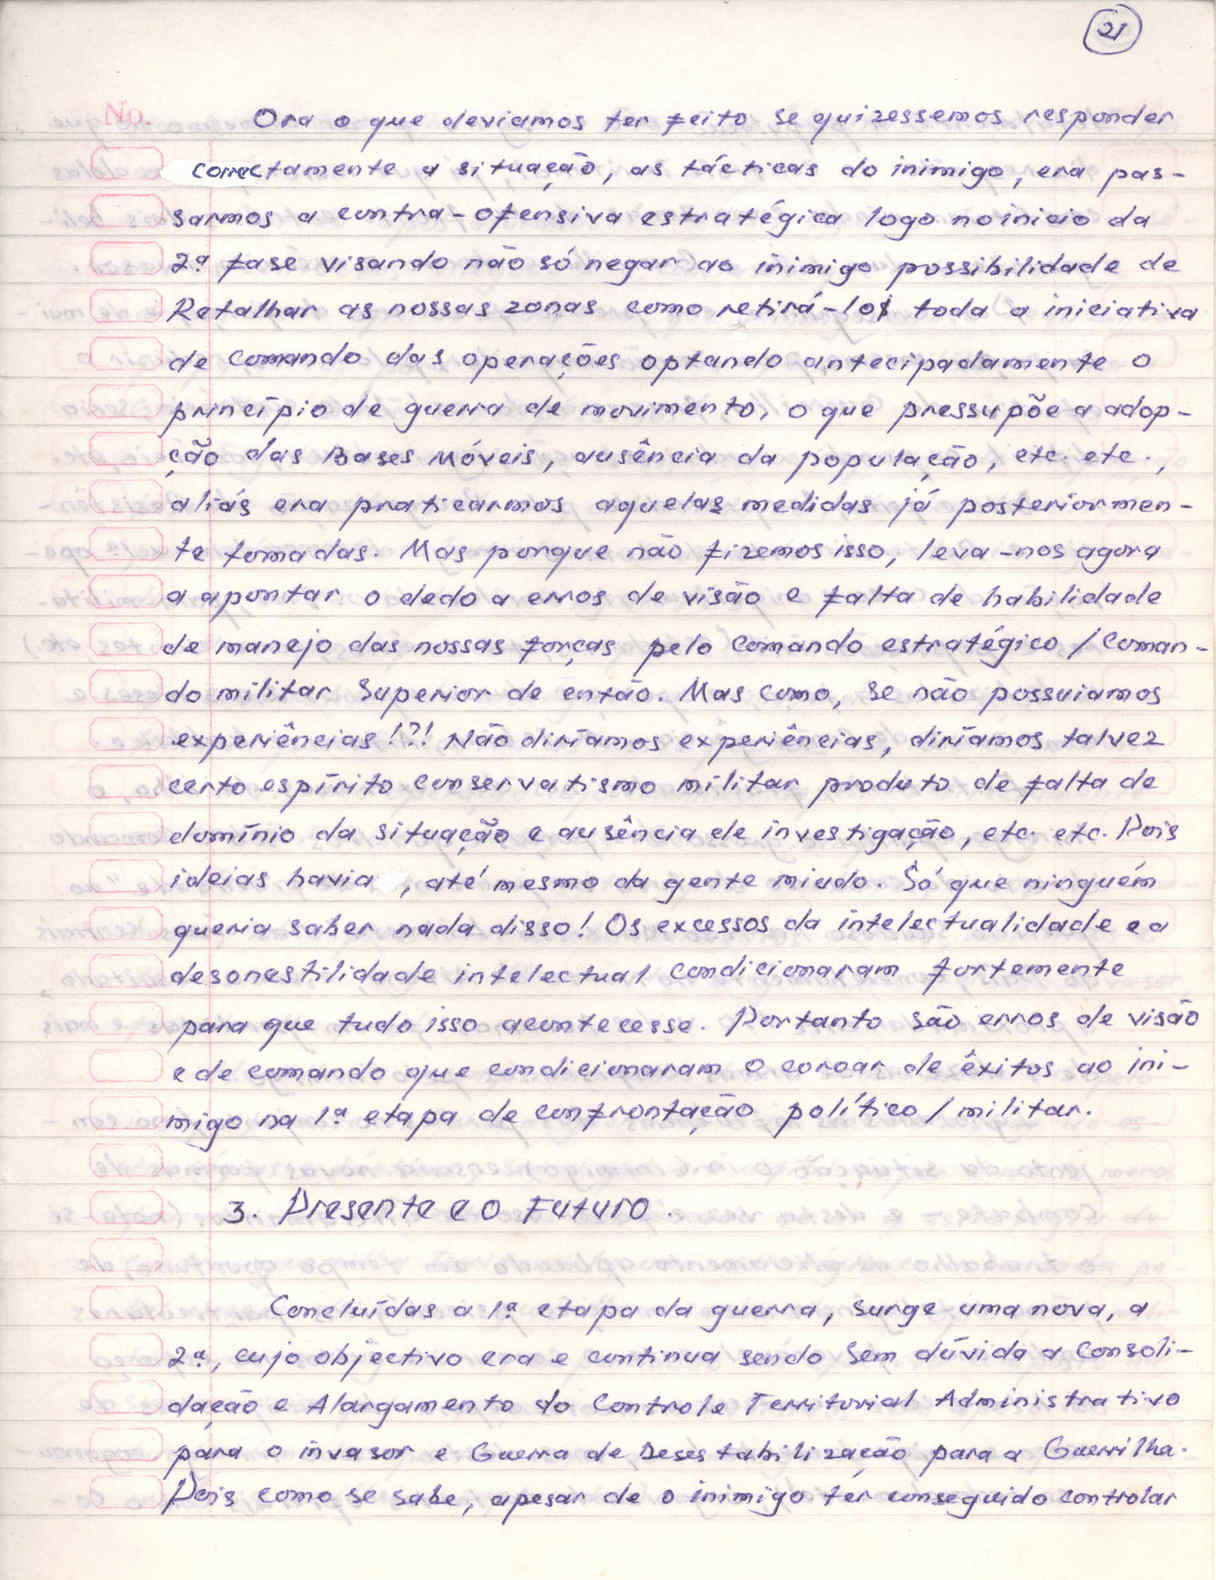 21
No.
Ora o que deviamos ter feito se quizessemos responder
correctamente a situação, as tácticas do inimigo, era pas-
sarmos a contra-ofensiva estratégica logo no inicio da
2ª fase visando não só negar ao inimigo possibilidade de
Retalhar as nossas zonas como retirá-los toda a iniciativa
de comando das operações optando antecipadamente o
princípio de guerra de movimento, o que pressupõe a adop-
ção das Bases Móveis, ausência da população, etc. etc.,
aliás era praticarmos aquelas medidas já posteriormen-
te tomadas. Mas porque não fizemos isso, leva-nos agora
a apontar o dedo a erros de visão e falta de habilidade
de manejo das nossas forças pelo comando estratégico / Coman-
do militar Superior de então. Mas como, se não possuiamos
experiências!?! Não diríamos experiências, diríamos talvez
certo espírito conservatismo militar produto de falta de
domínio da situação e ausência de investigação, etc. etc. Pois
ideias havia , até mesmo da gente miudo. Só que ninguém
queria saber nada disso! Os excessos da intelectualidade e a
desonestilidade intelectual condicionaram fortemente
para que tudo isso acontecesse. Portanto são erros de visão
e de comando que condicionaram o coroar de êxitos ao ini-
migo na 1ª etapa de confrontação político / militar.
3. Presente e o Futuro.
Concluídas a 1ª etapa da guerra, surge uma nova, a
2ª, cujo objectivo era e continua sendo sem dúvida a Consoli-
dação e Alargamento do Controle Territorial Administrativo
para o invasor e Guerra de Desestabilização para a Guerrilha.
Pois como se sabe, apesar de o inimigo ter conseguido controlar